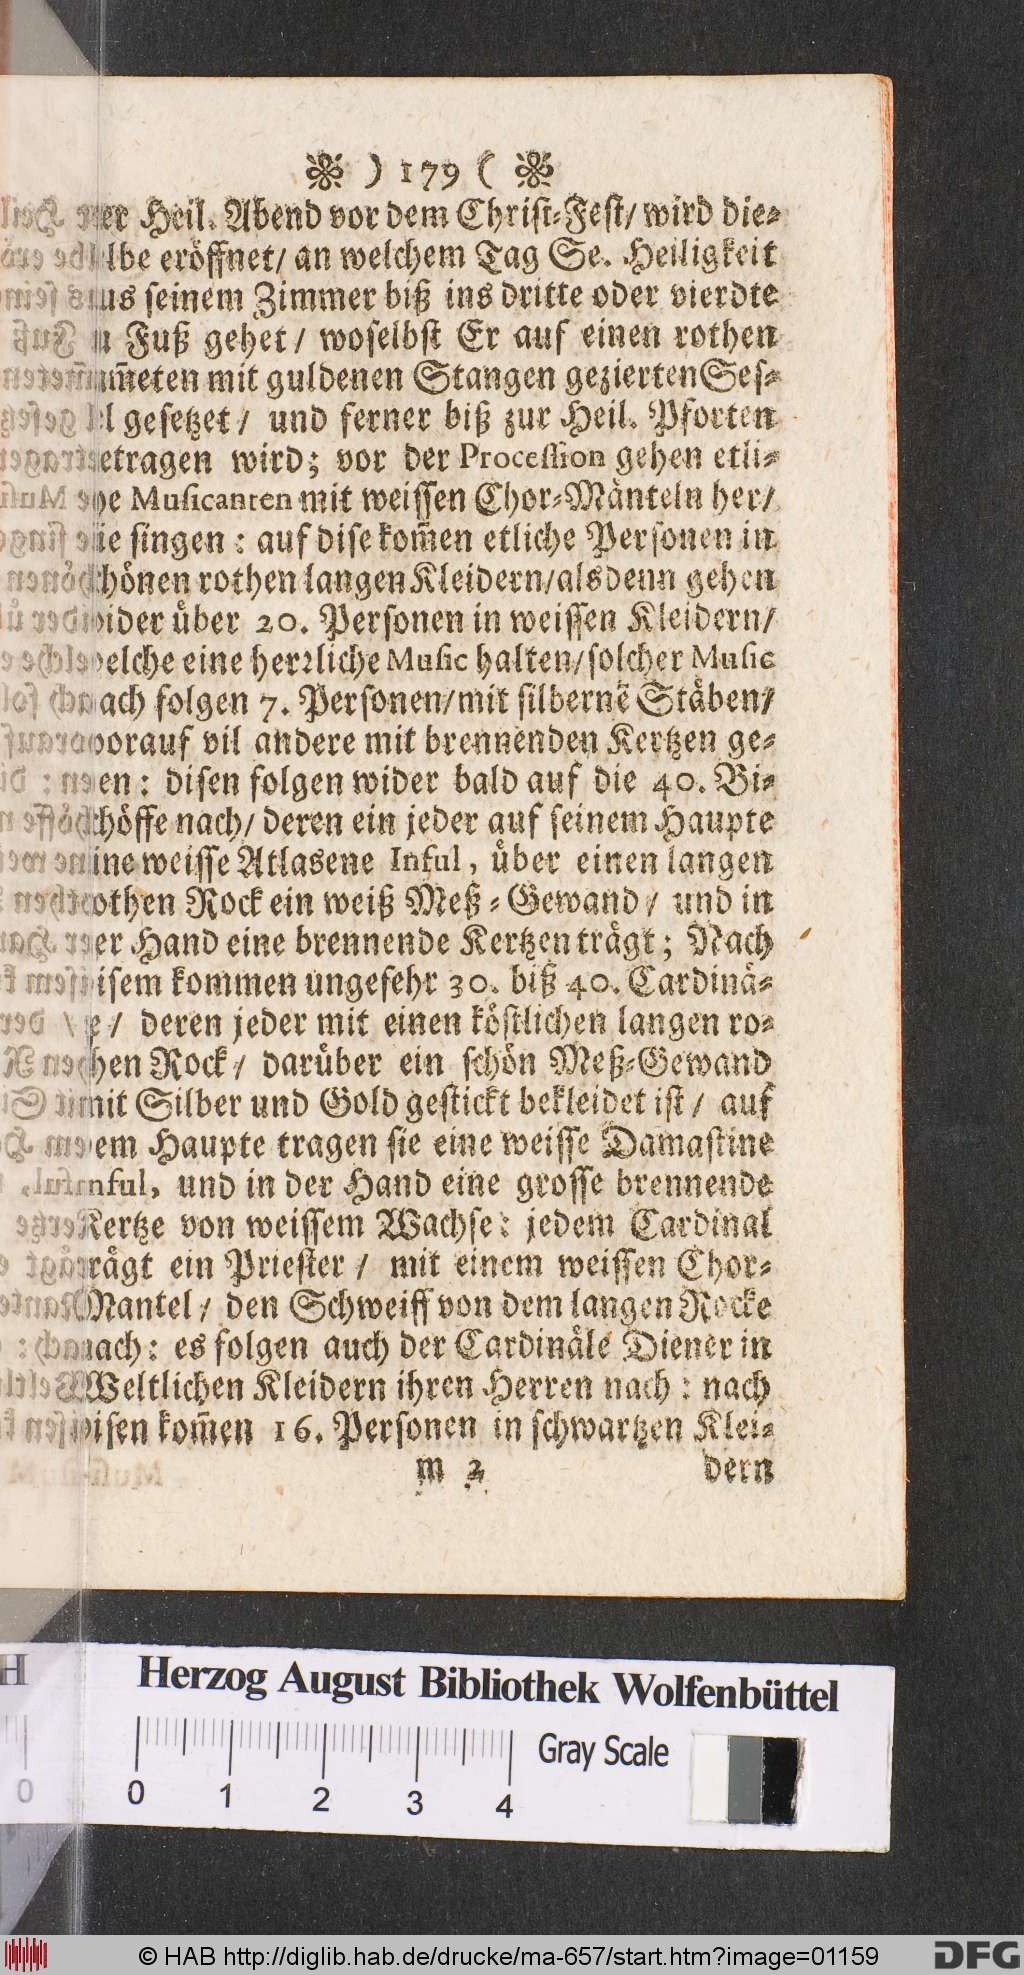 ) 179 (
er Heil. Abend vor dem Christ-Fest/ wird die-
lbe eröffnet/ an welchem Tag Se. Heiligkeit
us seinem Zimmer biß ins dritte oder vierdte
u Fuß gehet/ woselbst Er auf einen rothen
m̃eten mit guldenen Stangen gezierten Ses-
l gesetzet/ und ferner biß zur Heil. Pforten
etragen wird; vor der Procession gehen etli-
he Musicanten mit weissen Chor-Mänteln her/
ie singen: auf dise kom̃en etliche Personen in
hönen rothen langen Kleidern/ alsdenn gehen
ider über 20. Personen in weissen Kleidern/
elche eine herzliche Music halten/ solcher Music
ach folgen 7. Personen/ mit silbernẽ Stäben/
orauf vil andere mit brennenden Kertzen ge-
en: disen folgen wider bald auf die 40. Bi-
höffe nach/ deren ein jeder auf seinem Haupte
ine weisse Atlasene Inful, über einen langen
othen Rock ein weiß Meß-Gewand/ und in
er Hand eine brennende Kertzen trägt; Nach
isem kommen ungefehr 30. biß 40. Cardinä-
e/ deren jeder mit einen köstlichen langen ro-
hen Rock/ darüber ein schön Meß-Gewand
mit Silber und Gold gestickt bekleidet ist/ auf
em Haupte tragen sie eine weisse Damastine
nful, und in der Hand eine grosse brennende
Kertze von weissem Wachse: jedem Cardinal
rägt ein Priester/ mit einem weissen Chor-
Mantel/ den Schweiff von dem langen Rocke
nach: es folgen auch der Cardinäle Diener in
Weltlichen Kleidern ihren Herren nach: nach
isen kom̃en 16. Personen in schwartzen Klei-
m 2 dern
Herzog August Bibliothek Wolfenbüttel
0 1 2 3 4 Gray Scale
© HAB http://diglib.hab.de/drucke/ma-657/start.htm?image=01159 DFG